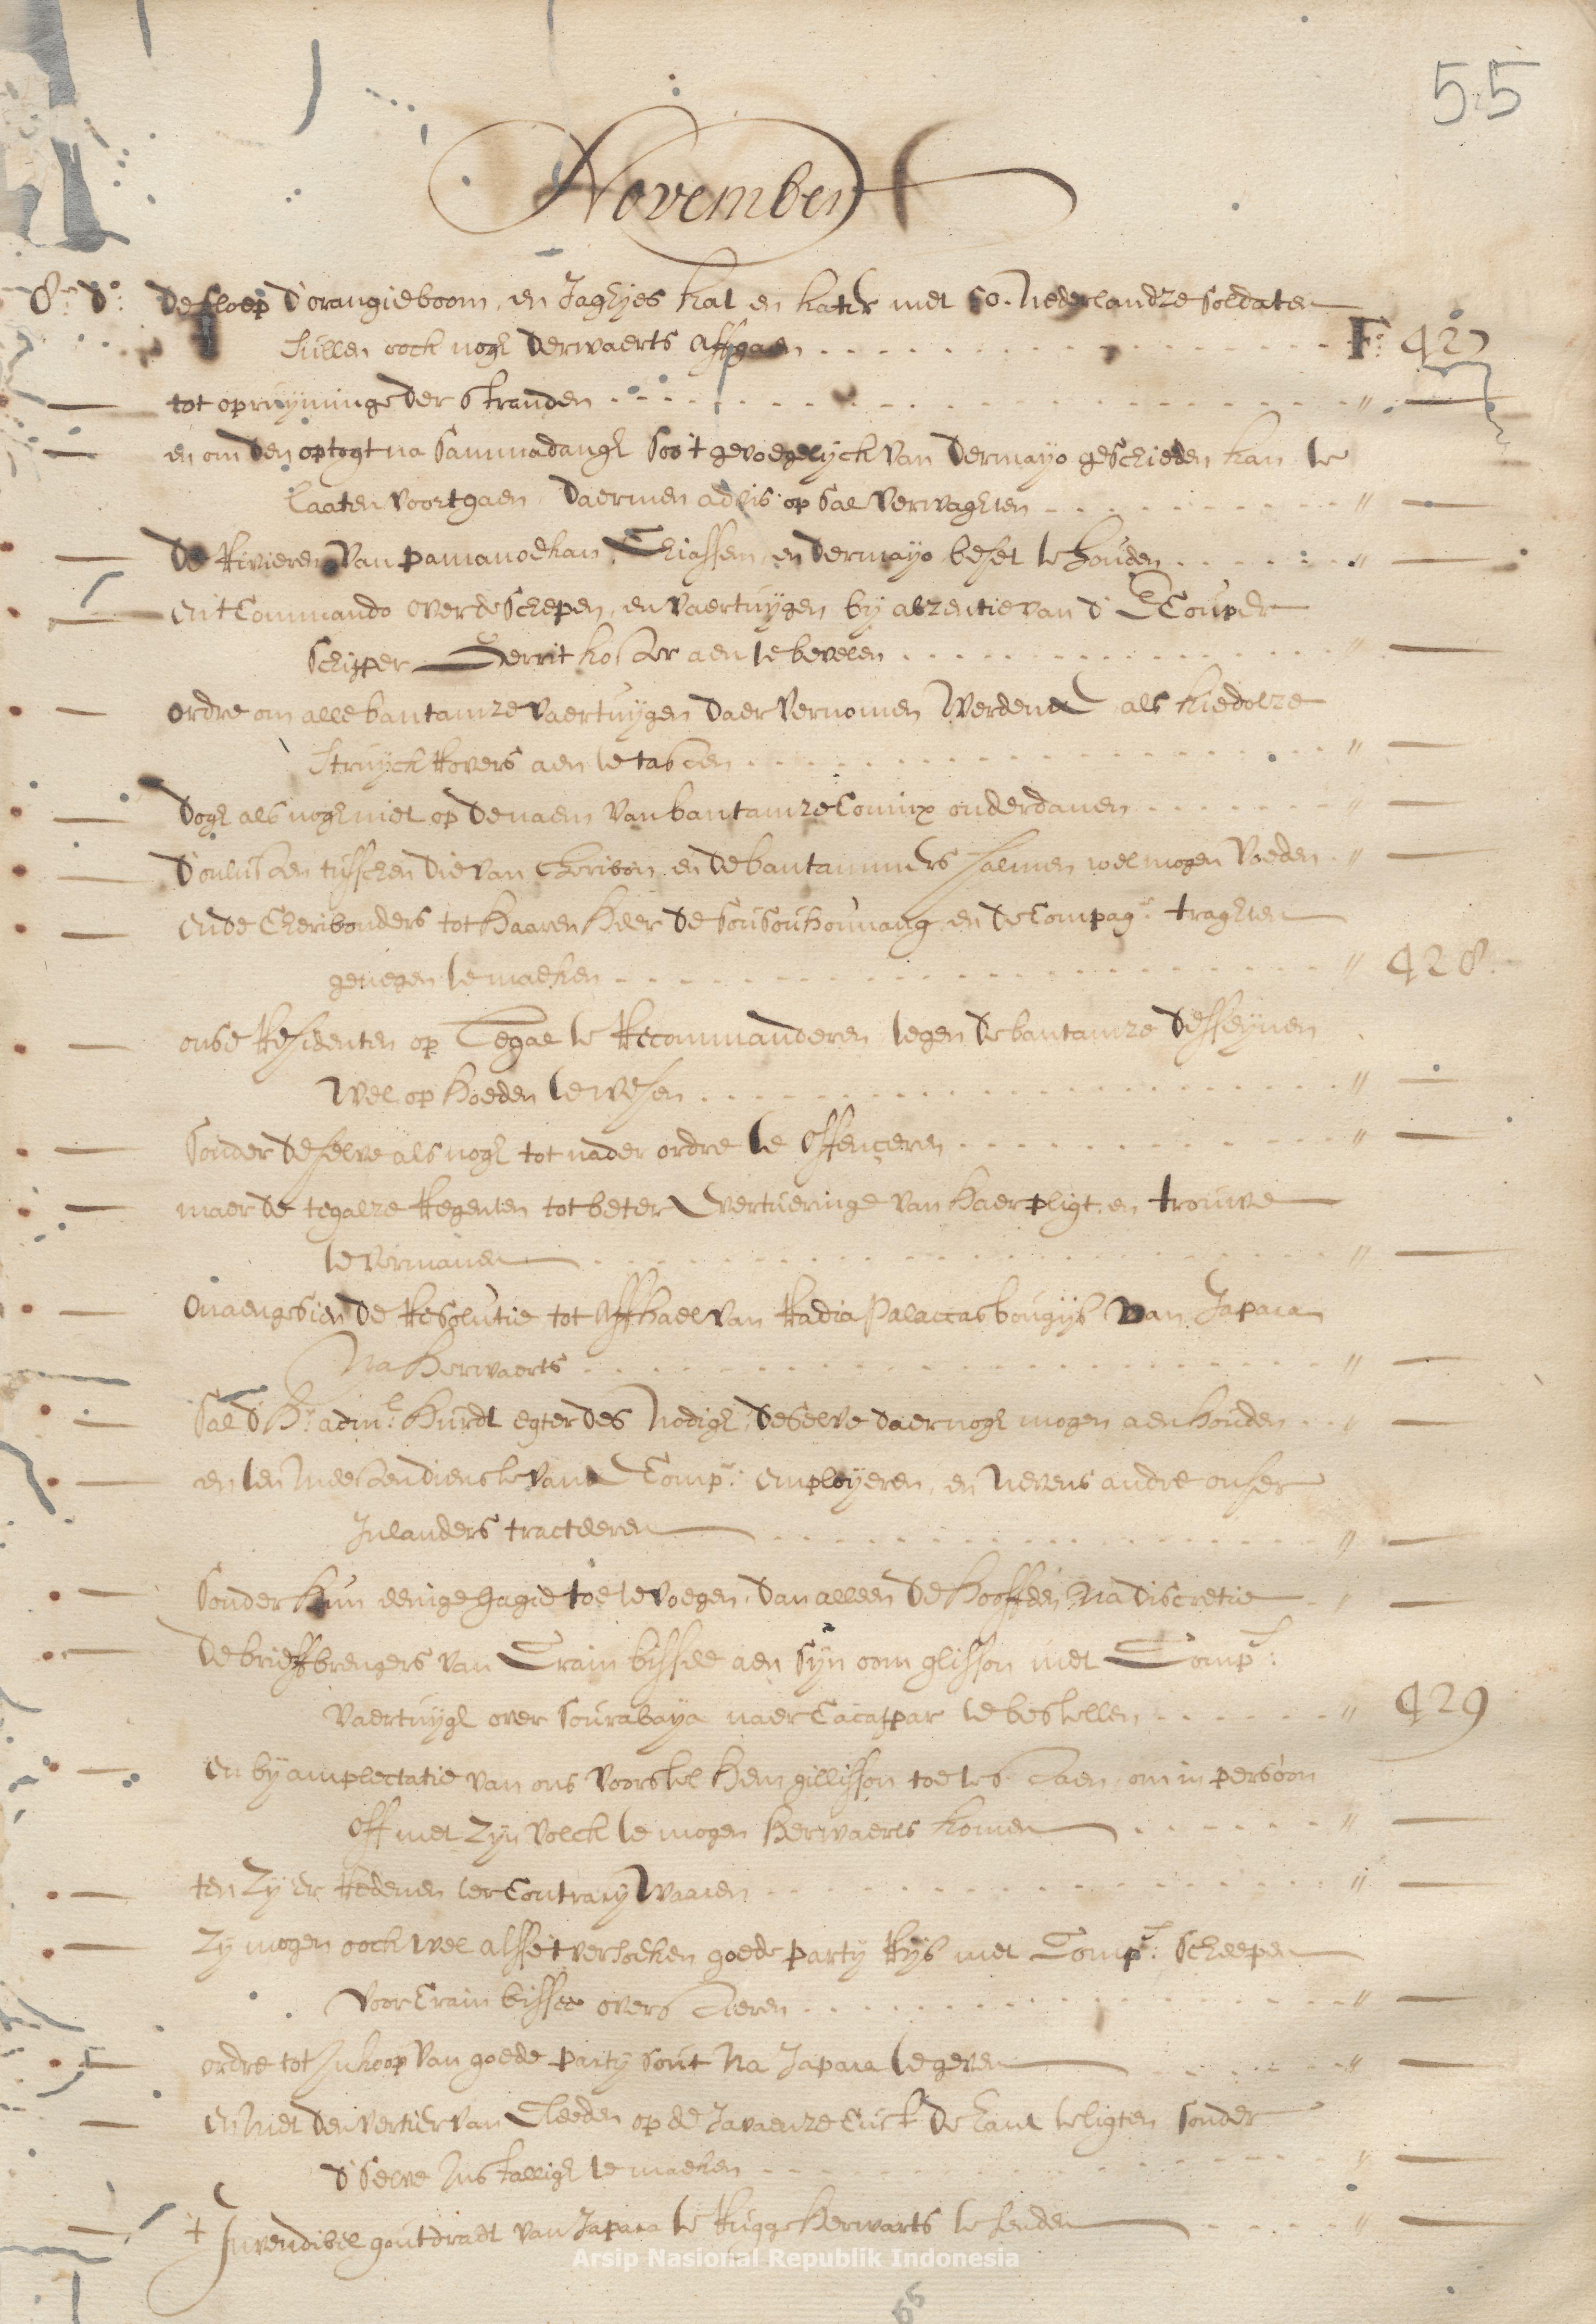 55
November
8en do: de sloep d'orangieboom, en Jaghjes kat en kater met 50. Nederlandze soldaten
sullen oock nogh derwaerts affgaen Fo: 427
— tot opruijminge der stranden " —
— en om den optogt na Sammadangh soo 't gevoegelijck van dermayo geschieden kan te
laaten voortgaen, daermen advis op sal verwaghten " —
— de Rivieren van Pamanoekan, Chiassem, en dermayo beset te houden " —
— en 't Commando over de schepen, en vaertuijgen bij abzentie van d' E Couper
schipper Gerrit Koster aen te bevelen " —
— ordre om alle bantamze vaertuijgen daer vernomen werdende als
struijck Rovers aen te tasten " —
— dogh als nogh niet op de naem van bantamze Coninx onderdanen " —
— d'onlusten tusschen die van Cheribon en de bantammers salmen wel mogen voeden " —
— en de Cheribonders tot haaren heer de Sousouhounang en de Compage: traghten
genegen te maeken " 428.
— onse Residenten op Tegal te Recommanderen tegen de bantamze desseijnen
wel op hoeden te wesen " —
— sonder deselve als nogh tot nader ordre te offenceren " —
— maer de tegalze Regenten tot beter van haer pligt, en trouwe
te vermanen " —
— Onaengesien de Resolutie tot affhael van Radia Palaccas bougijs van Japara
na herwaerts " —
— Sal d' Hr: adml: Hurdt egter des nodigh deselve daer nogh mogen aenhouden " —
— en ten meesten dienste vande Compe: employeren, en nevens andre onser
Inlanders tracteeren " —
— sonder hun eenige gagie toe te voegen, dan alleen de hooffden na discretie " —
— de brieffbrengers van Crain bissee aen sijn oom glisson met Compe:
vaertuijgh over Sourabaya naer Cacaspar te bestellen " 429
— en bij amplectatie van ons voorstel hem gillisson toe te staen, om in persoon
off met zijn volck te mogen herwaerts komen " —
— ten zij er Redenen ter Contrarij waaren " —
— zij mogen oock wel als 't versoeken goede partij Rijs met Compe: scheepen
voor Crain bissee overs " —
— ordre tot inkoop van goede partij sout na Japara te geven " —
— en met den vertier van Cleeden op de Javaenze Cust de hant te ligten sonder
d'selve te maeken " —
— + Invendibel goutdraet van Japara te Rugge herwarts te senden " —
Arsip Nasional Republik Indonesia
55